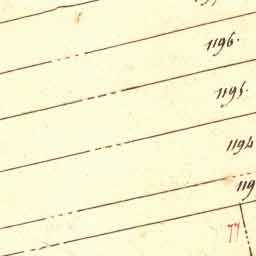 1196.
1195.
1194
119
77